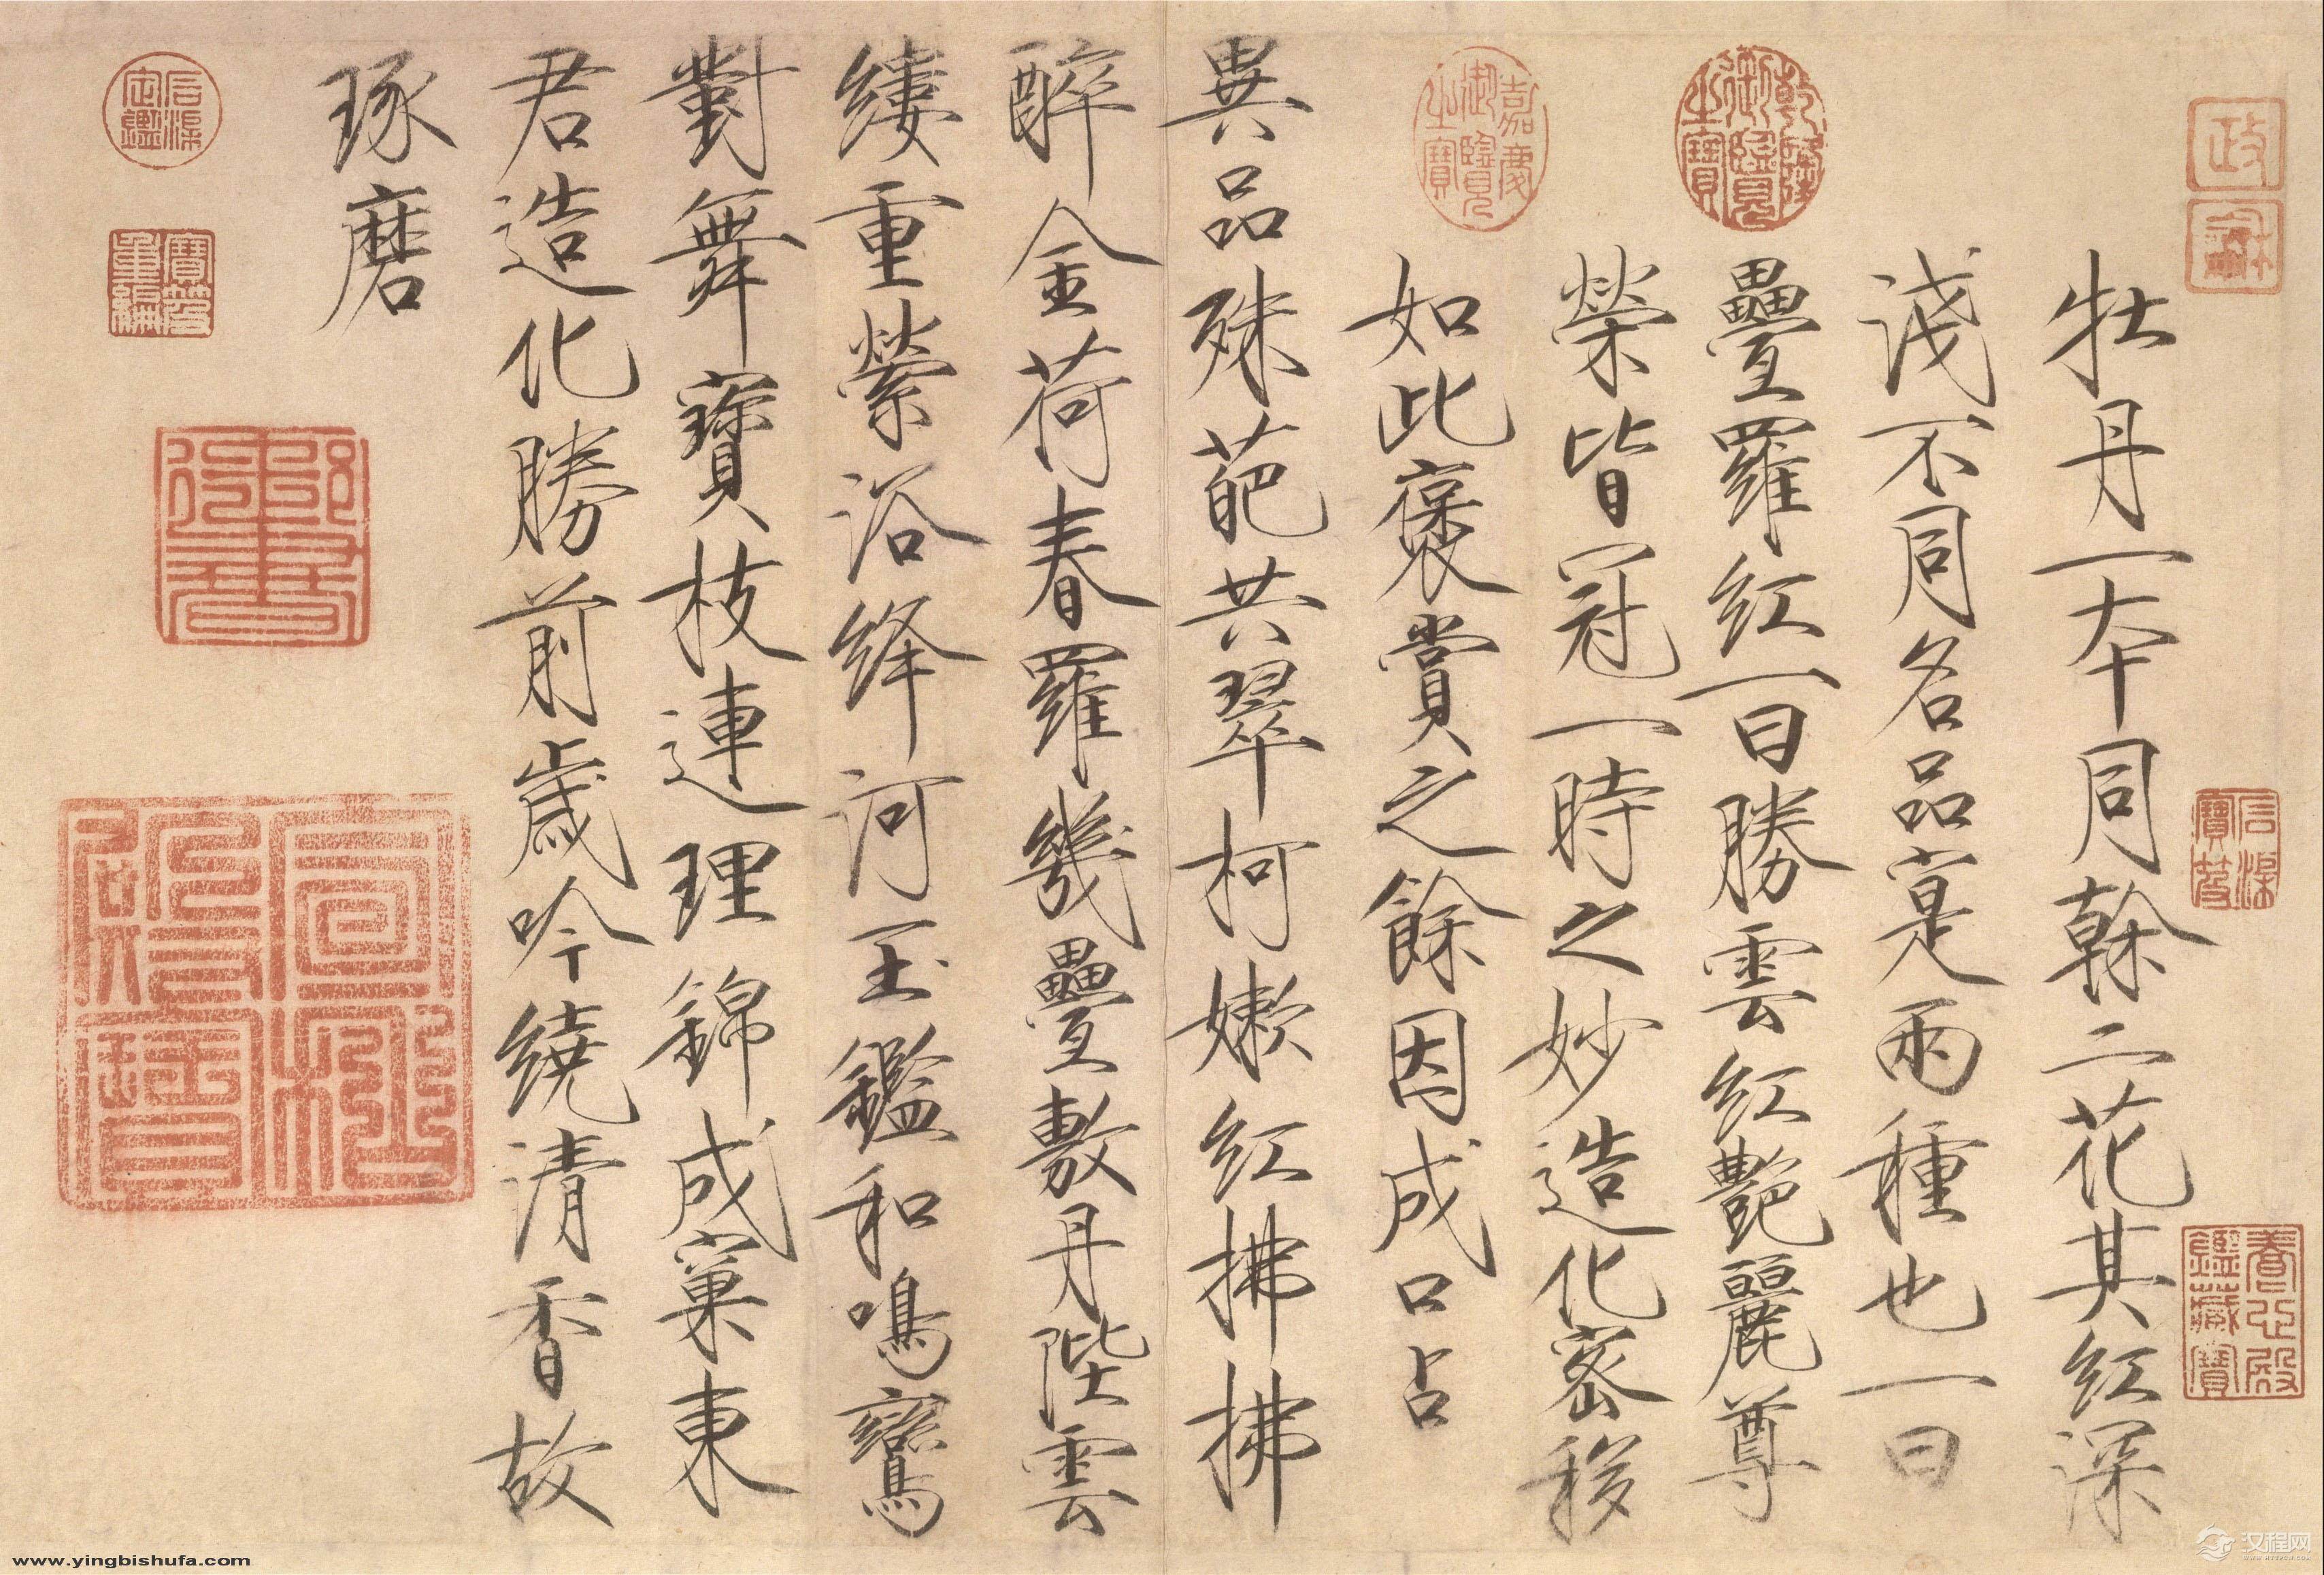 牡丹一本同榦二花其紅深
淺不同名品寔兩種也一曰
疊羅紅一曰勝雲紅艷麗尊
榮皆冠一時之妙造化密移
如此褒賞之餘因成口占
異品殊葩共翠柯嫩紅拂拂
醉金荷春羅幾疊敷丹陛雲
縷重縈浴絳河玉鑑和鳴鸞
對舞寶枝連理錦成窠東
君造化勝前歲吟繞清香故
琢磨
政
龢
乾隆御覽之寶
嘉慶御覽之寶
養心殿鑑藏寶
www.yingbishufa.com
汉程网